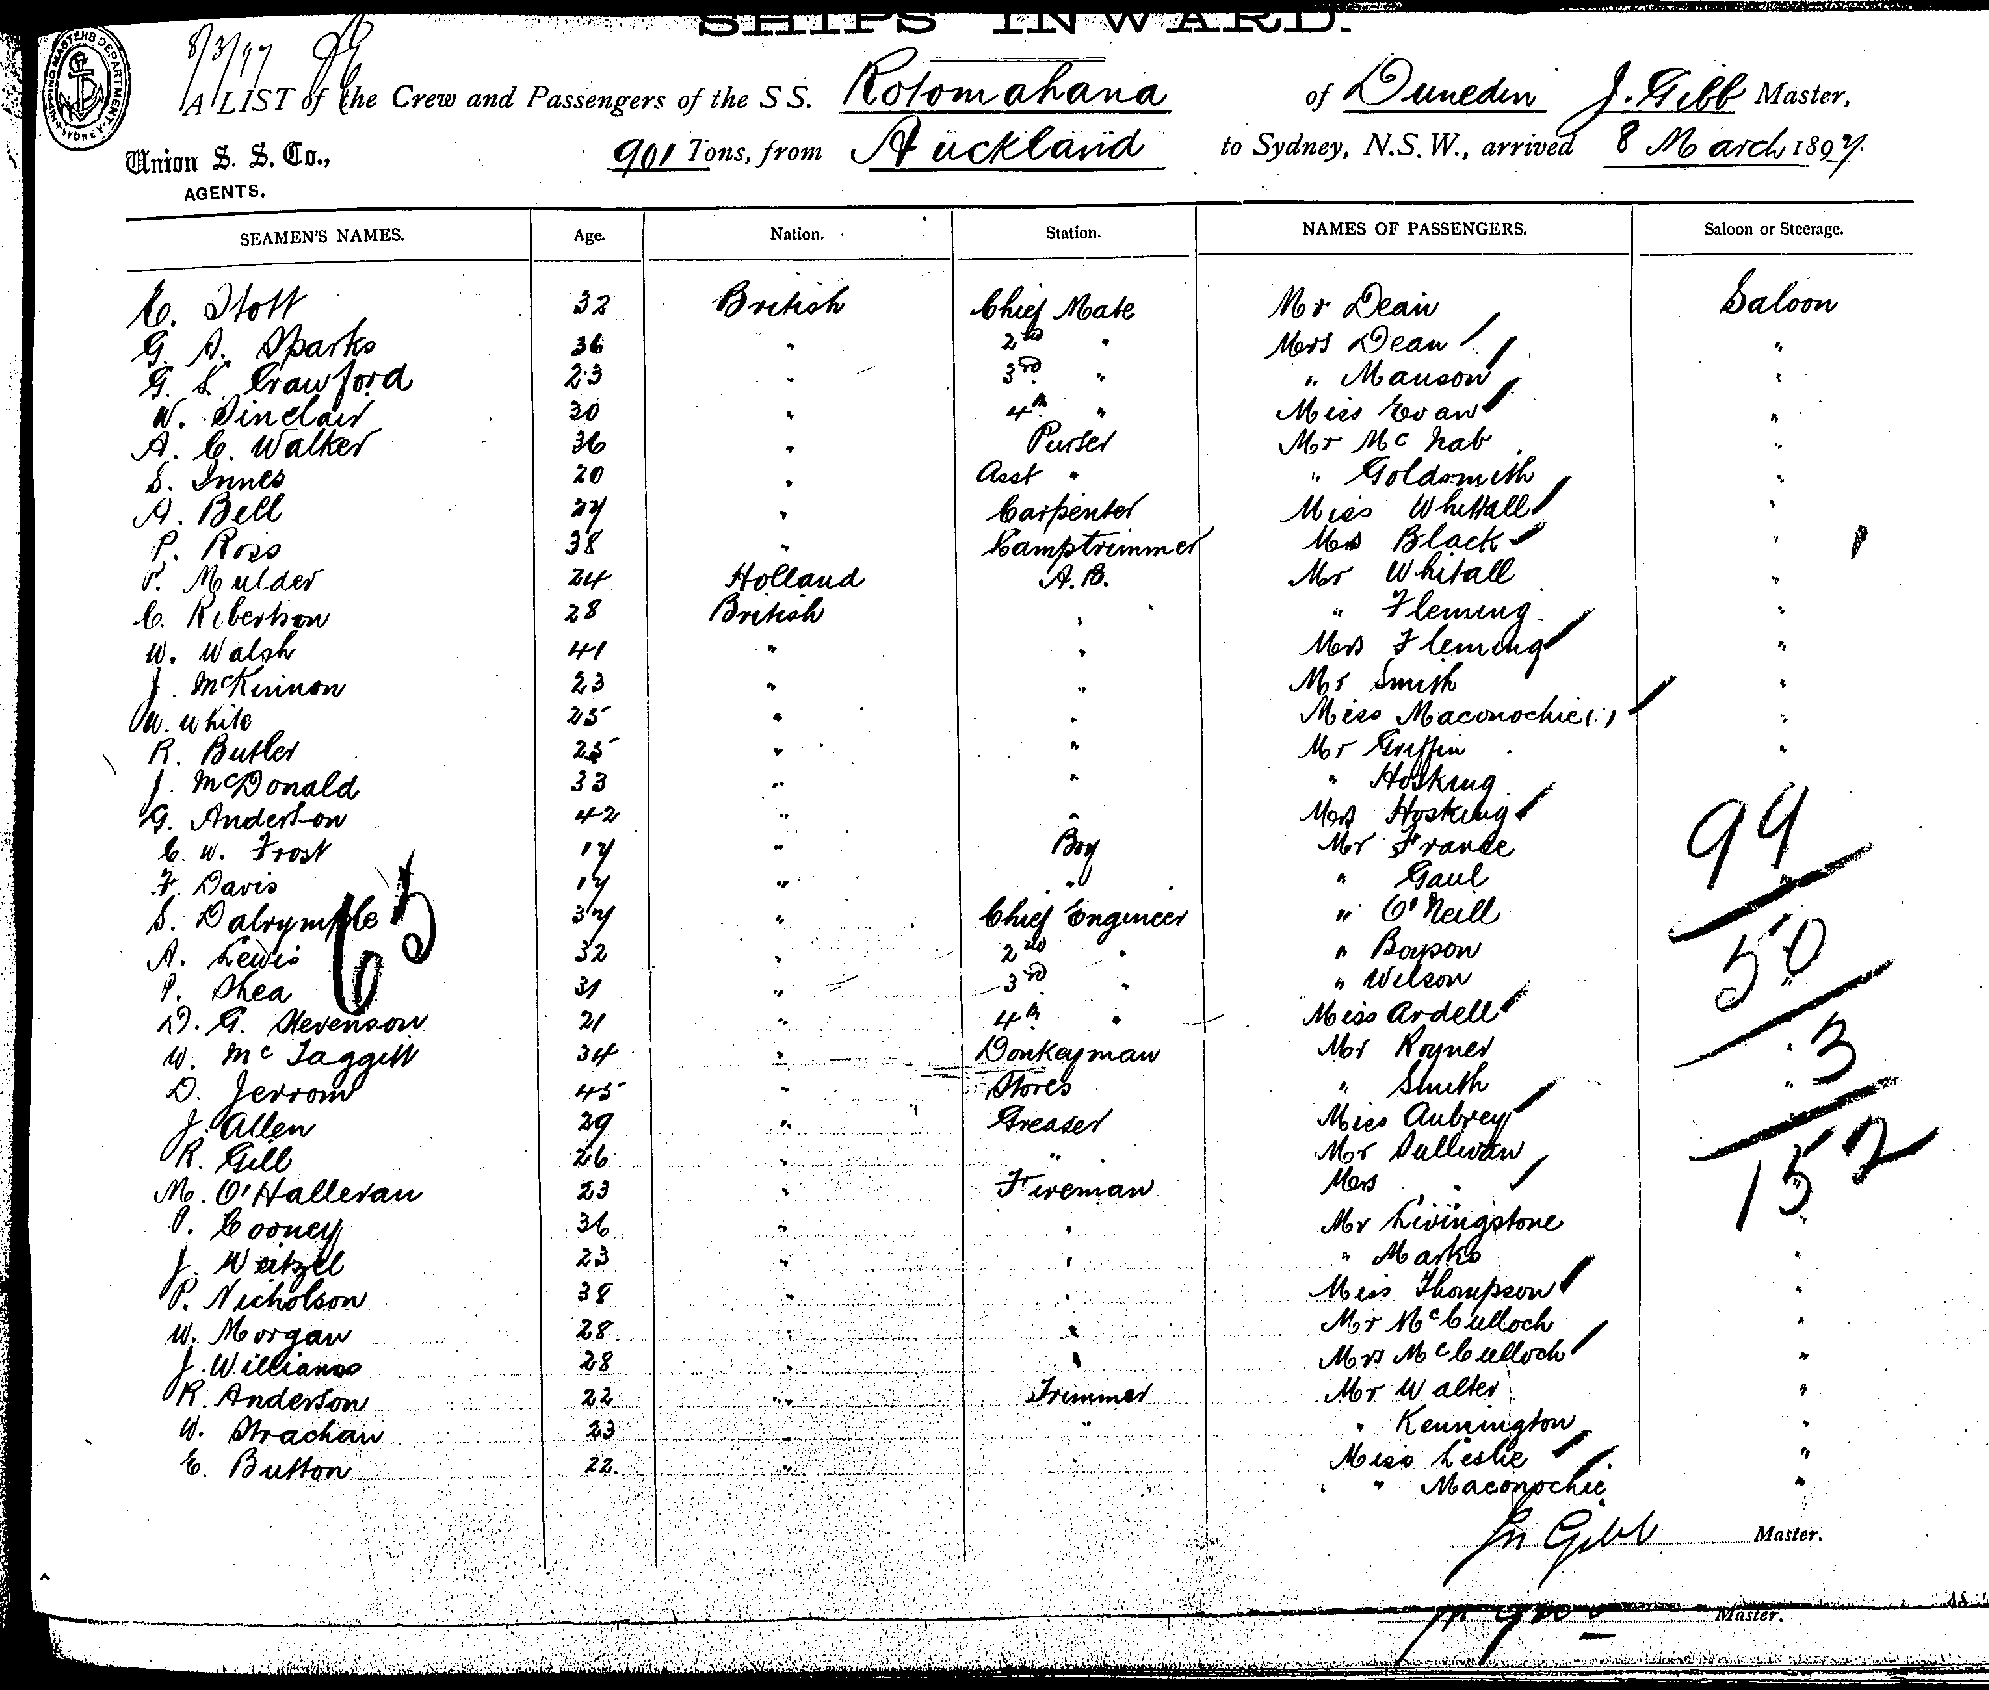 SHIPS INWARD.
8/3/97
A LIST of the Crew and Passengers of the S S. Rotomahana of Dunedin J. Gibb Master,
Union S. S. Co., 901 Tons, from Auckland to Sydney, N.S.W., arrived 8 March 1897.
AGENTS.
SEAMEN'S NAMES. Age. Nation. Station. NAMES OF PASSENGERS. Saloon or Steerage.
E. Stott 32 British Chief Mate Mr Dean Saloon
G. A. Sparks 36 " 2nd " Mrs Dean "
G. L. Crawford 23 " 3rd " " Manson "
W. Sinclair 30 " 4th " Miss Evan "
A. C. Walker 36 " Purser Mr McNab "
S. Innes 20 " Asst " " Goldsmith "
A. Bell 27 " Carpenter Miss Whittall "
P. Ross 38 " Lamptrimmer Mrs Black "
P. Mulder 24 Holland A.B. Mr Whitall "
C. Robertson 28 British " " Fleming "
W. Walsh 41 " " Mrs Fleming "
J. McKinnon 23 " " Mr Smith "
W. White 25 " " Miss Maconochie (1) "
R. Butler 25 " " Mr Griffin "
J. McDonald 33 " " " Hosking
G. Anderson 42 " " Mrs Hosking
C. W. Frost 17 " Boy Mr France
F. Davis 17 " " " Gaul "
S. Dalrymple 37 " Chief Engineer " O'Neill
A. Lewis 32 " 2nd " " Boyson
P. Shea 31 " 3rd " " Wilson "
D. G. Stevenson 21 " 4th " Miss Ardell
W. McTaggitt 34 " Donkeyman Mr Royner "
D. Jerrom 45 " Stores " Smith "
J. Allen 29 " Greaser Miss Aubrey
R. Gill 26 " " Mr Sullivan
M. O'Halleran 23 " Fireman Mrs " "
P. Cooney 36 " " Mr Livingstone "
J. Weitzel 23 " " " Marks "
P. Nicholson 38 " " Miss Thompson "
W. Morgan 28 " " Mr McCulloch "
J. Williams 28 " " Mrs McCulloch "
R. Anderson 22 " Trimmer Mr Walter "
W. Strachan 23 " " " Kennington "
E. Button 22 " Miss Leslie "
" Maconochie "
65
99
50
3
152
Jn Gibb Master.
Master.